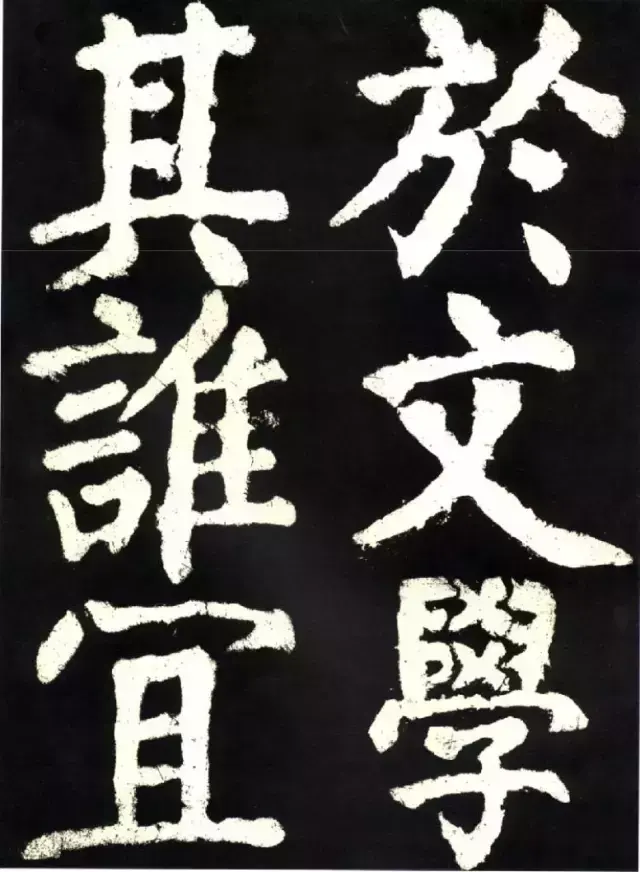 於文學
其誰宜